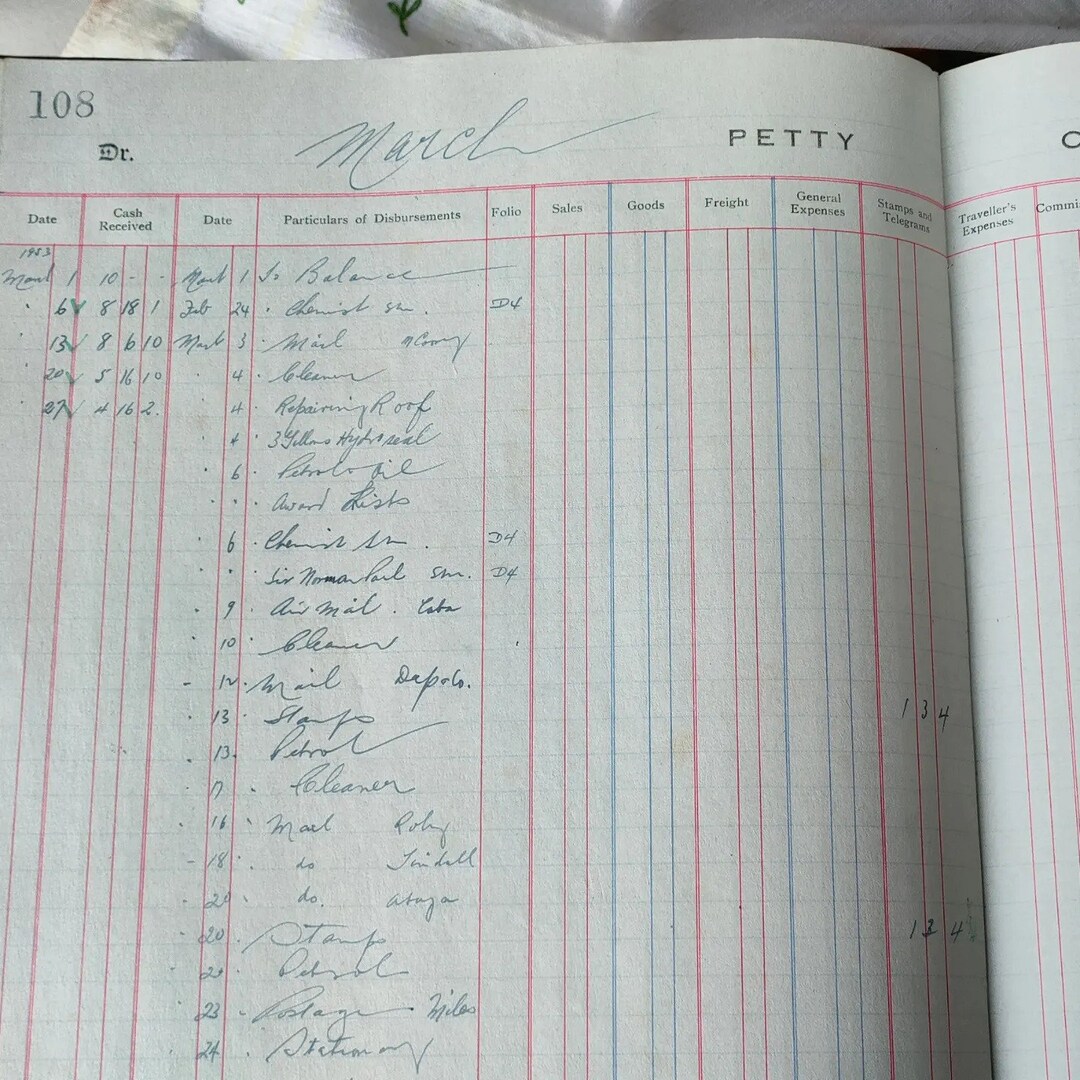 108
Dr. March PETTY C
Date Cash Received Date Particulars of Disbursements Folio Sales Goods Freight General Expenses Stamps and Telegrams Traveller's Expenses Commis
1953
March 1 10 - - March 1 To Balance
" 6 8 18 1 Feb 24 " Chemist Sm. D4
" 13 8 6 10 March 3 " Mail
" 20 5 16 10 " 4 " Cleaner
" 27 4 16 2. " 4 " Repairing Roof
" 4 " 3 Gallons Hydroseal
" 6 " Petrol & Oil
" " " Award Lists
" 6 " Chemist Sm. D4
" " " Sir Norman Paul Sm. D4
" 9 " Air Mail.
" 10 " Cleaner
" 12 " Mail
" 13 " Stamps 1 3 4
" 13 " Petrol
" 17 " Cleaner
" 16 " Mail
" 18 " do Tindall
" 20 " do.
" 20 " Stamps 1 3 4
" 20 " Petrol
" 23 " Postage Miles
" 24 " Stationery